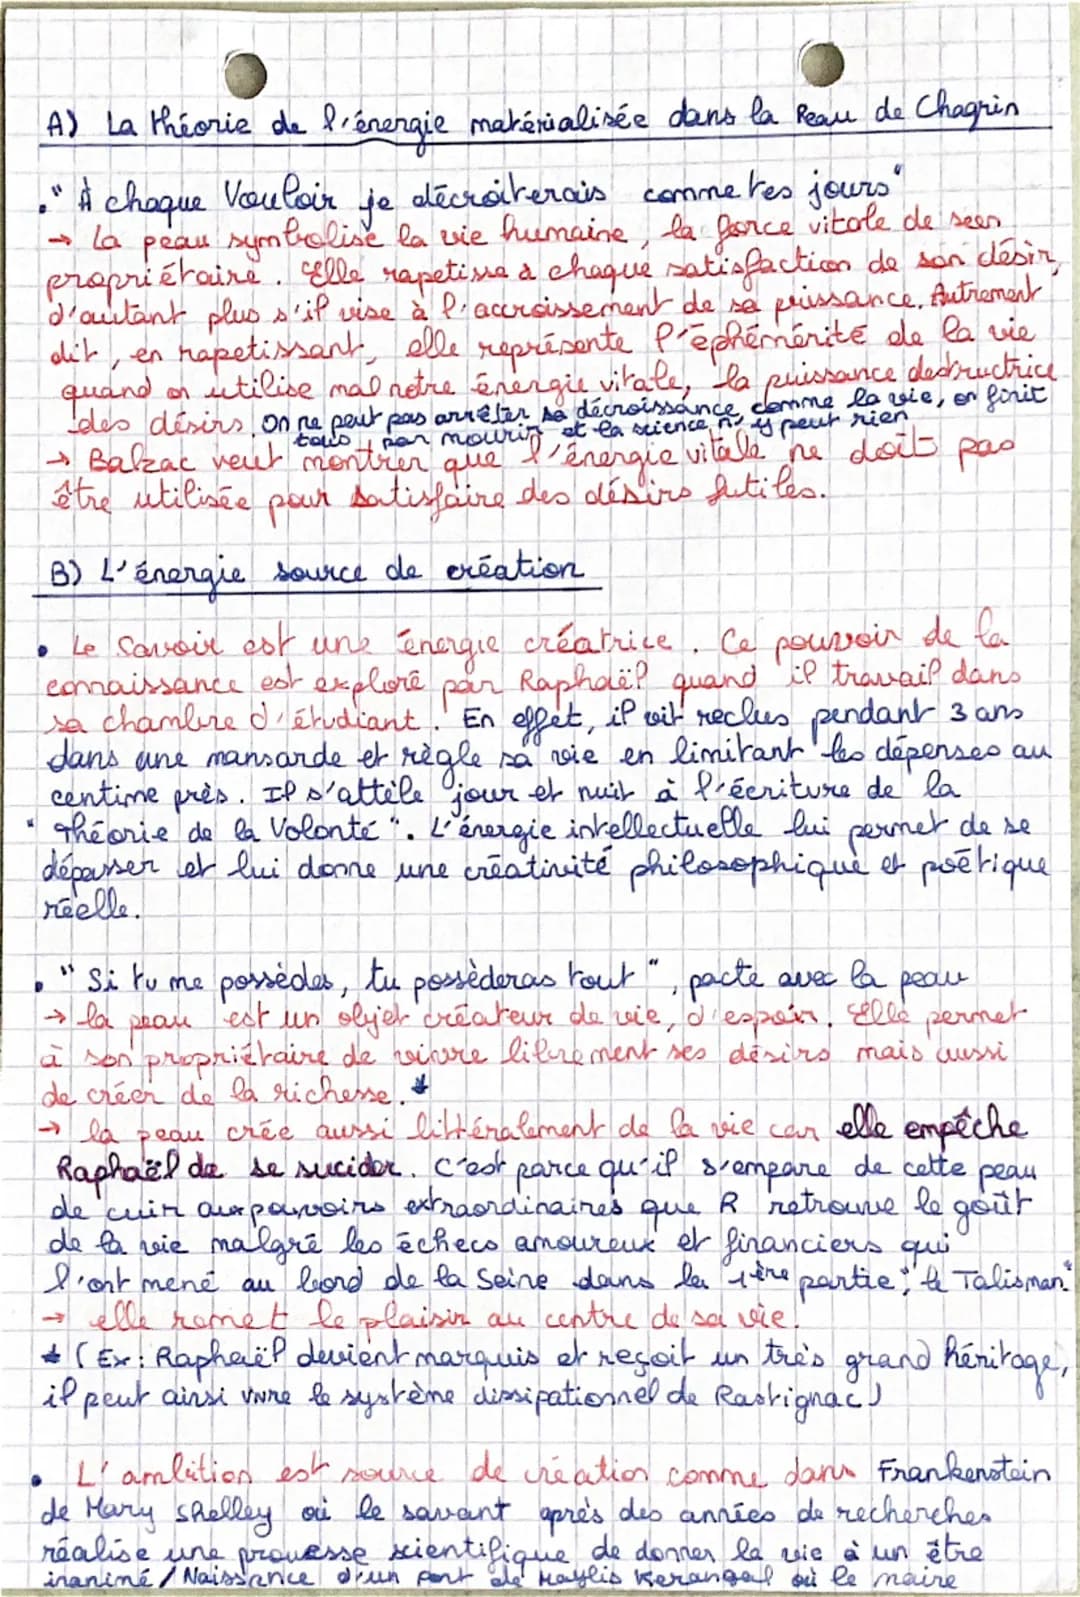 A) La théorie de l'énergie matérialisée dans la Peau de Chagrin
• "À chaque Vouloir je décroiterais comme tes jours"
→ La peau symbolise la vie humaine, la force vitale de son
propriétaire. Elle rapetisse à chaque satisfaction de son désir,
d'autant plus s'il vise à l'accroissement de sa puissance. Autrement
dit, en rapetissant, elle représente l'éphémérité de la vie
quand on utilise mal notre énergie vitale, la puissance destructrice
des désirs. On ne peut pas arrêter sa décroissance, comme la vie, on finit
tous par mourir et la science n'y peut rien
→ Balzac veut montrer que l'énergie vitale ne doit pas
être utilisée pour satisfaire des désirs futiles.
B) L'énergie source de création
• Le Savoir est une énergie créatrice. Ce pouvoir de la
connaissance est exploré par Raphaël quand il travail dans
sa chambre d'étudiant. En effet, il vit reclus pendant 3 ans
dans une mansarde et règle sa vie en limitant les dépenses au
centime près. Il s'attèle jour et nuit à l'écriture de la
"Théorie de la Volonté". L'énergie intellectuelle lui permet de se
dépasser et lui donne une créativité philosophique et poétique
réelle.
• "Si tu me possèdes, tu possèderas tout", pacte avec la peau
→ la peau est un objet créateur de vie, d'espoir. Elle permet
à son propriétaire de vivre librement ses désirs mais aussi
de créer de la richesse. *
→ la peau crée aussi littéralement de la vie car elle empêche
Raphaël de se sucider. C'est parce qu'il s'empare de cette peau
de cuir aux pouvoirs extraordinaires que R retrouve le goût
de la vie malgré les échecs amoureux et financiers qui
l'ont mené au bord de la Seine dans la 1ère partie "le Talisman".
→ elle remet le plaisir au centre de sa vie.
* (Ex: Raphaël devient marquis et reçoit un très grand héritage,
il peut ainsi vivre le système dissipationnel de Rastignac)
• L'ambition est source de création comme dans Frankenstein
de Mary Shelley où le savant après des années de recherches
réalise une prouesse scientifique de donner la vie à un être
inanimé / Naissance d'un pont de Maylis Kerangal où le maire